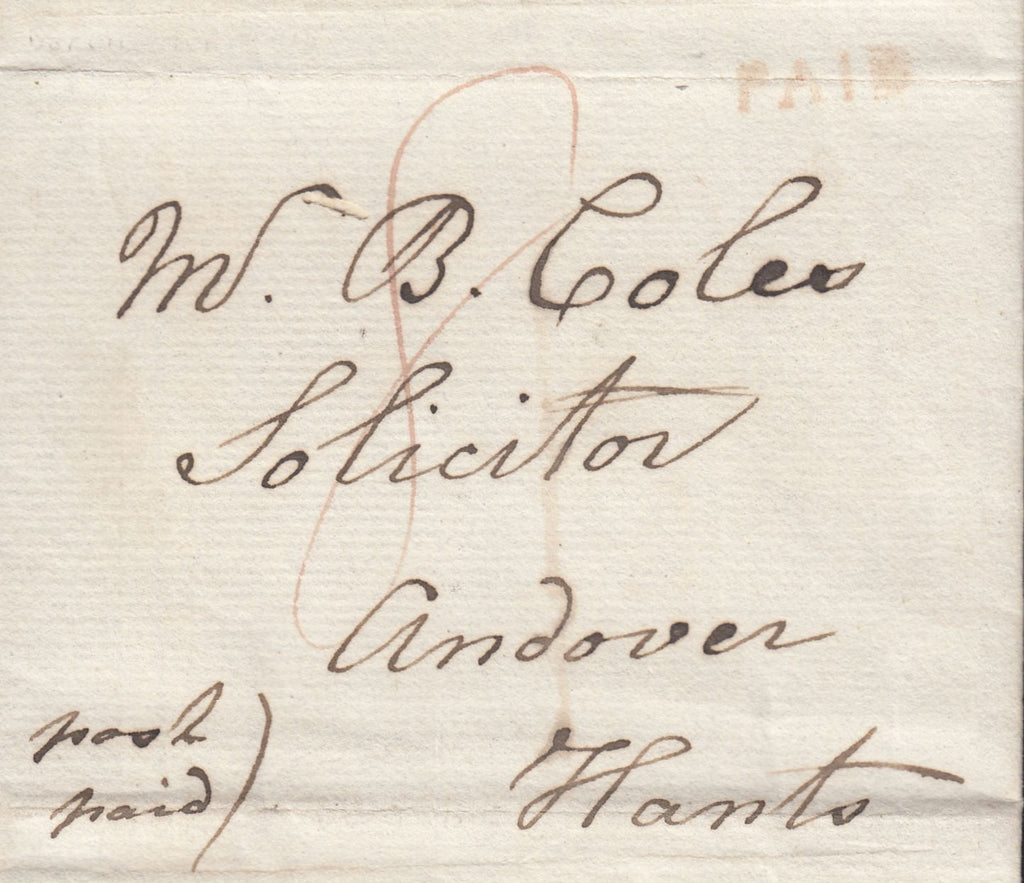 PAID
W. B. Coles
Solicitor
Andover
post
paid)
Hants
8